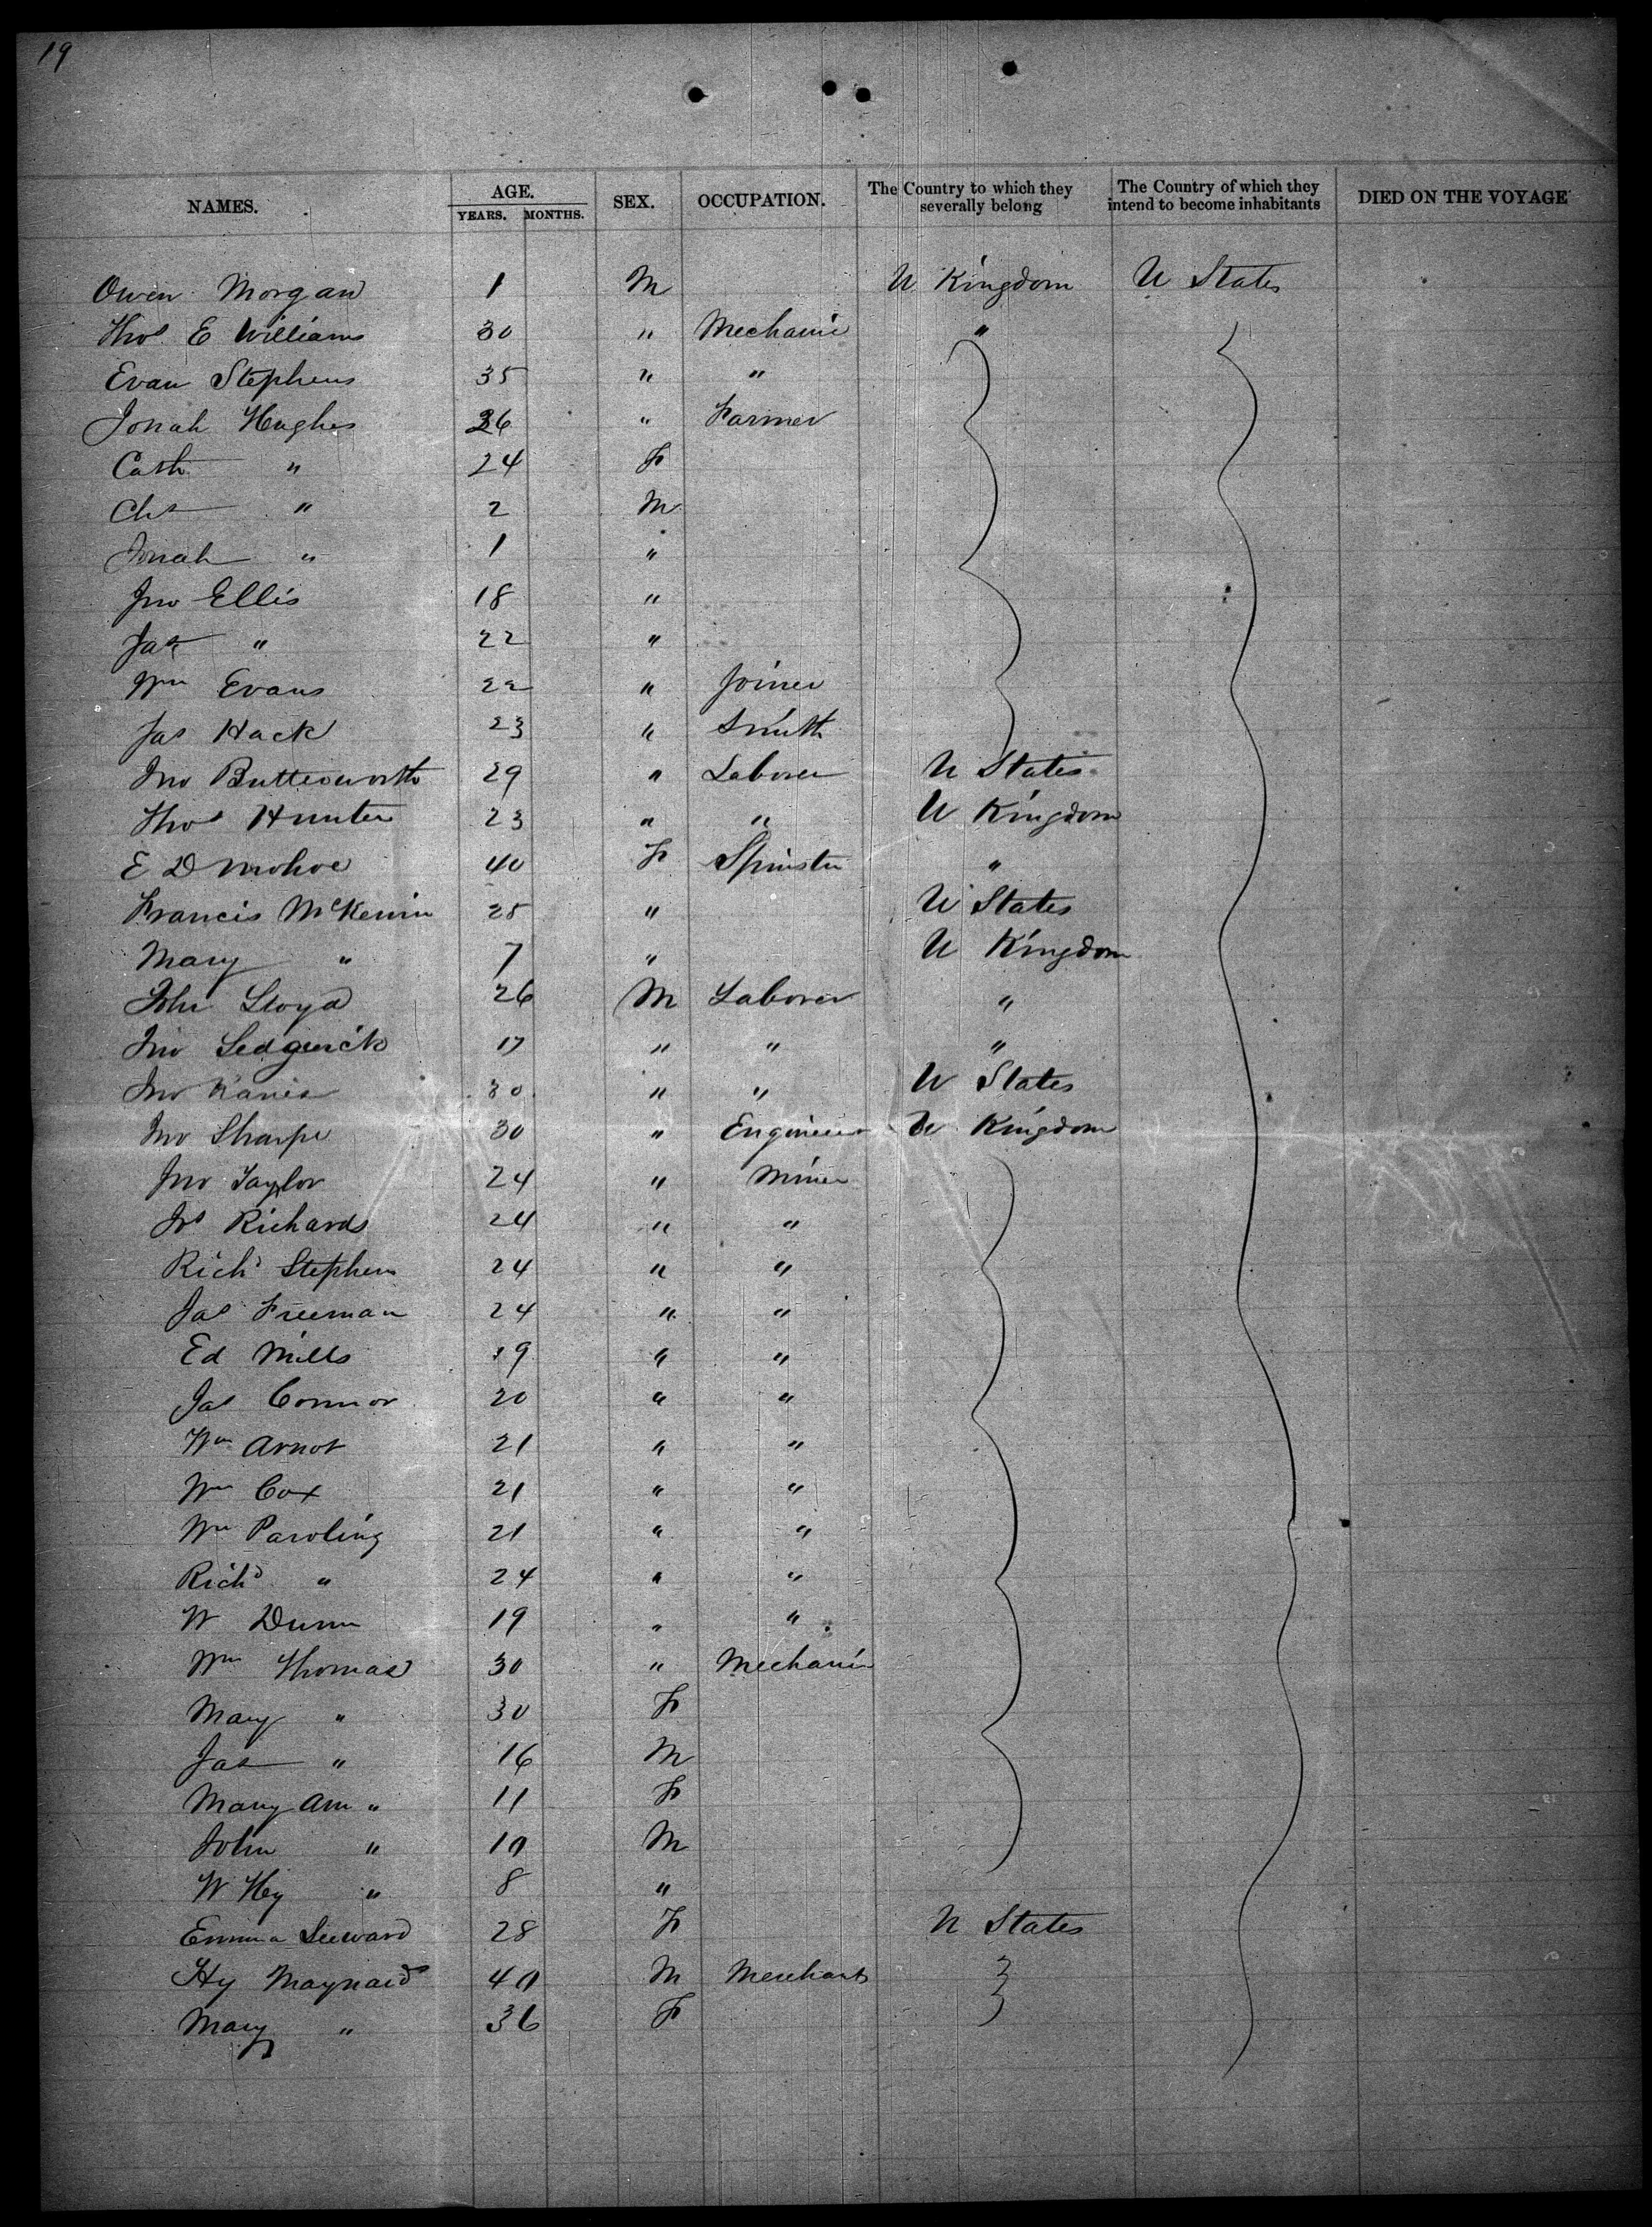 19
NAMES. AGE. YEARS. MONTHS. SEX. OCCUPATION. The Country to which they severally belong The Country of which they intend to become inhabitants DIED ON THE VOYAGE
Owen Morgan 1 M U Kingdom U States
Thos E Williams 30 " Mechanic "
Evan Stephens 35 " "
Jonah Hughes 36 " Farmer
Cath " 24 F
Chs " 2 M
Jonah " 1 "
Jno Ellis 18 "
Jas " 22 "
Wm Evans 22 " Joiner
Jas Hack 23 " Smith
Jno Butterworth 29 " Laborer U States
Thos Hunter 23 " " U Kingdom
E Donohoe 40 F Spinster "
Francis McKennin 25 " U States
Mary " 7 " U Kingdom
John Lloyd 26 M Laborer "
Jno Sedgwick 17 " " "
Jno 30 " " U States
Jno Sharpe 30 " Engineer U Kingdom
Jno Taylor 24 " Miner
Jos Richards 24 " "
Richd Stephens 24 " "
Jas Freeman 24 " "
Ed Mills 19 " "
Jas Connor 20 " "
Wm Arnot 21 " "
Wm Cox 21 " "
Wm Pawling 21 " "
Richd " 24 " "
W Dunn 19 " "
Wm Thomas 30 " Mechanic
Mary " 30 F
Jas " 16 M
Mary Ann " 11 F
John " 10 M
W Hy " 8 "
Emma Seeward 28 F U States
Hy Maynard 40 M Merchant
Mary " 36 F